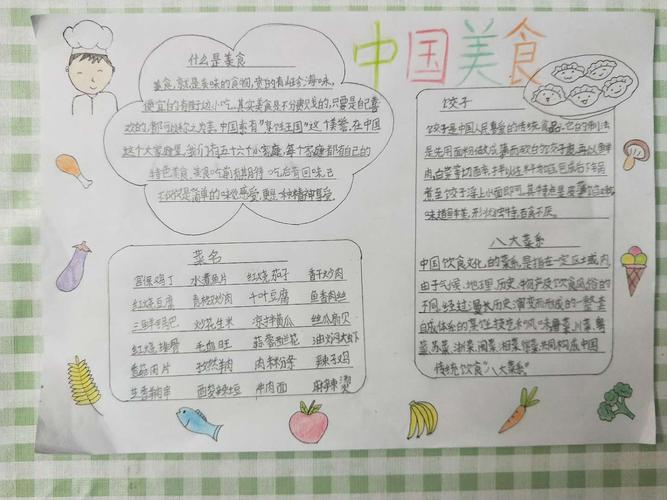 中国美食
什么是美食
美食,就是美味的食物,贵的有山珍海味,
便宜的有街边小吃。其实美食是不分贵贱的,只要是自己喜
欢的,都可以称之为美食。中国素有“烹饪王国”这个美誉,在中国
这个大家庭里,我们有五十六个小家庭,每个家庭都有自己的
特色美食。美食吃前有期待,吃后有回味,已
不仅仅是简单的味觉感受,更是一种精神享受。
饺子
饺子是中国人民喜爱的传统食品,它的制法
是先用面粉做成薄而软的饺子皮,再以鲜
肉、白菜等切碎,拌以佐料为馅,包后下锅
煮至饺子浮上水面即可。其特点是皮薄馅嫩,
味道鲜美,形状独特,百食不厌。
八大菜系
中国饮食文化的菜系,是指在一定区域内,
由于气候、地理、历史、物产及饮食风俗的
不同,经过漫长历史演变而形成的一整套
自成体系的烹饪技艺和风味。鲁菜、川菜、粤
菜、苏菜、浙菜、闽菜、湘菜、徽菜共同构成中国
传统饮食“八大菜系”
菜名
宫保鸡丁 水煮鱼片 红烧茄子 香干炒肉
红烧豆腐 青椒炒肉 千叶豆腐 鱼香肉丝
炒花生米 凉拌黄瓜 丝瓜扇贝
红烧排骨 毛血旺 蒜蓉兰花 油焖大虾
孜然羊肉 辣子鸡
牛肉面 麻辣烫